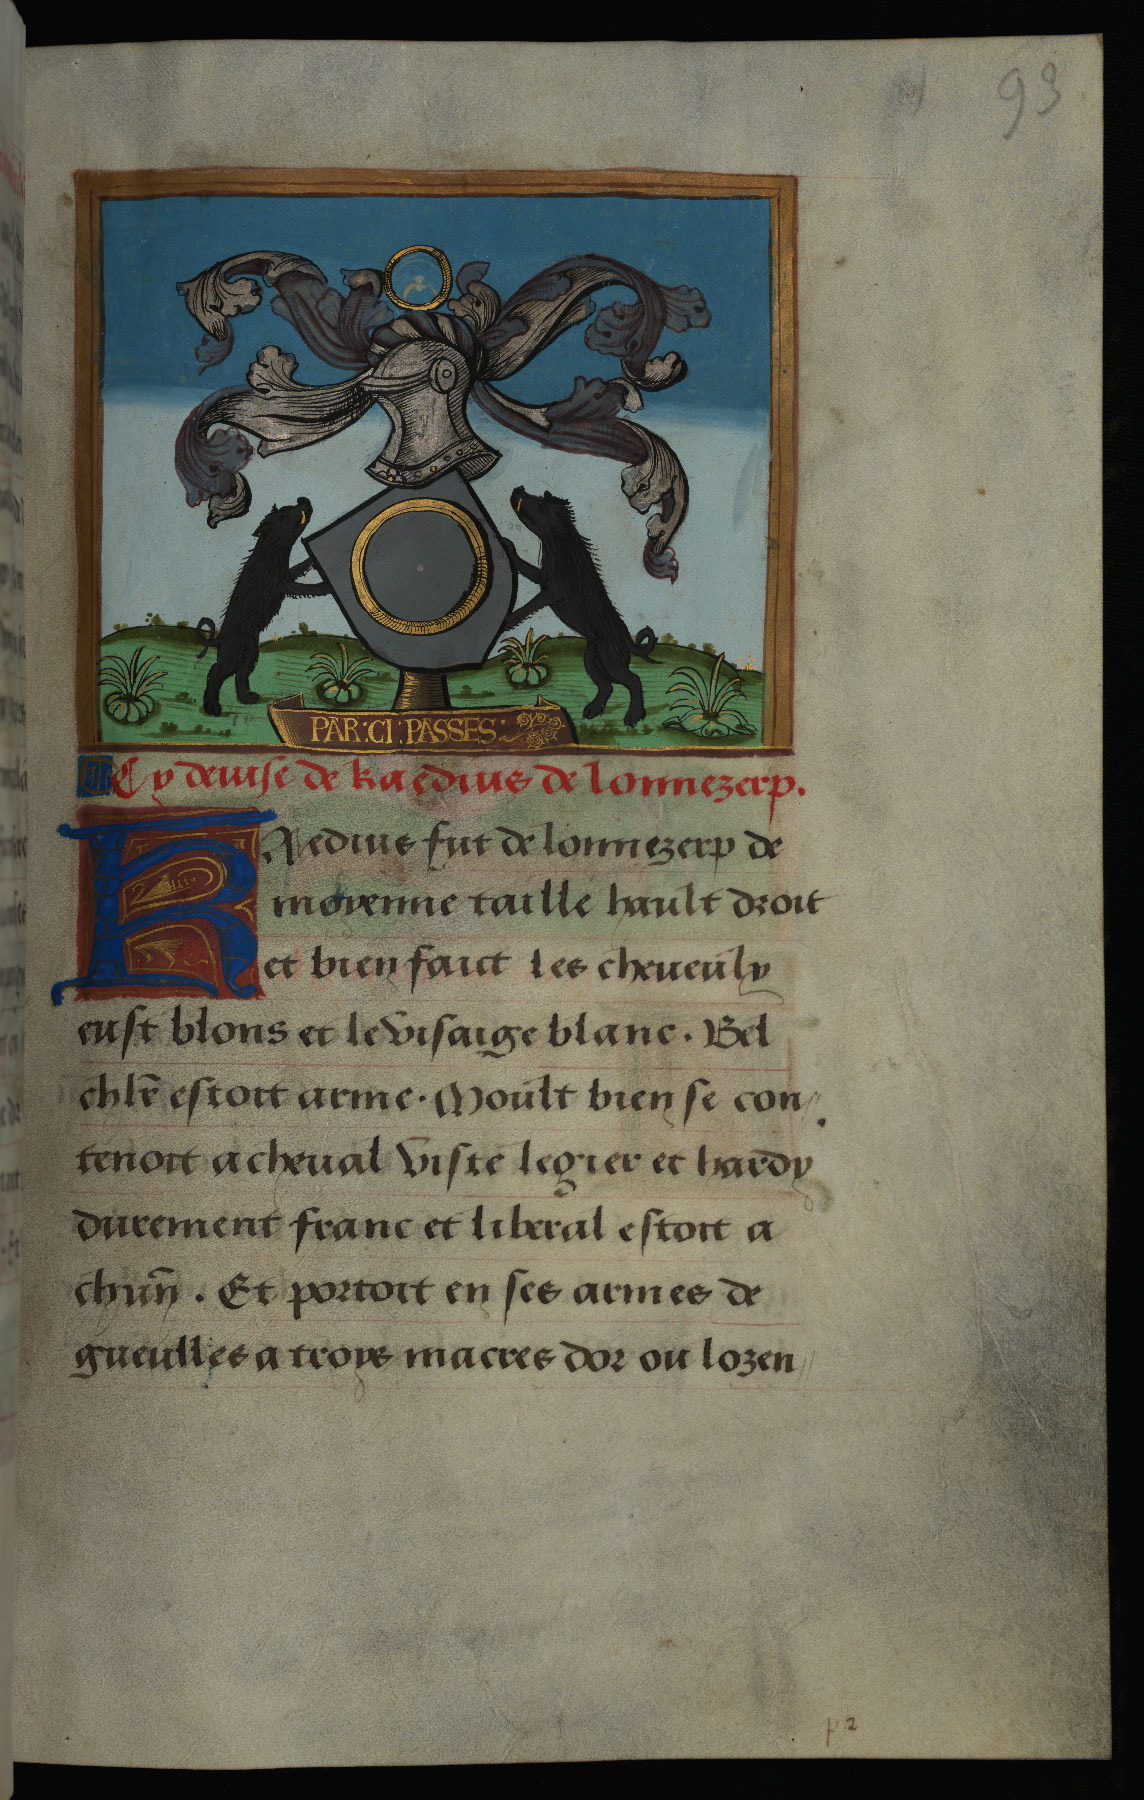 93
PAR : CI : PASSES :
Cy deuise de kaedius de lonnezerp.
KAedius fut de lonnezerp de
moyenne taille hault droit
et bien faict les cheueulx
eust blons et le visaige blanc. Bel
chlr̄ estoit arme. Moult bien se con
tenoit a cheual viste legier et hardy
durement franc et liberal estoit a
chun̄. Et portoit en ses armes de
gueulles a troys macres dor ou lozen
p 2